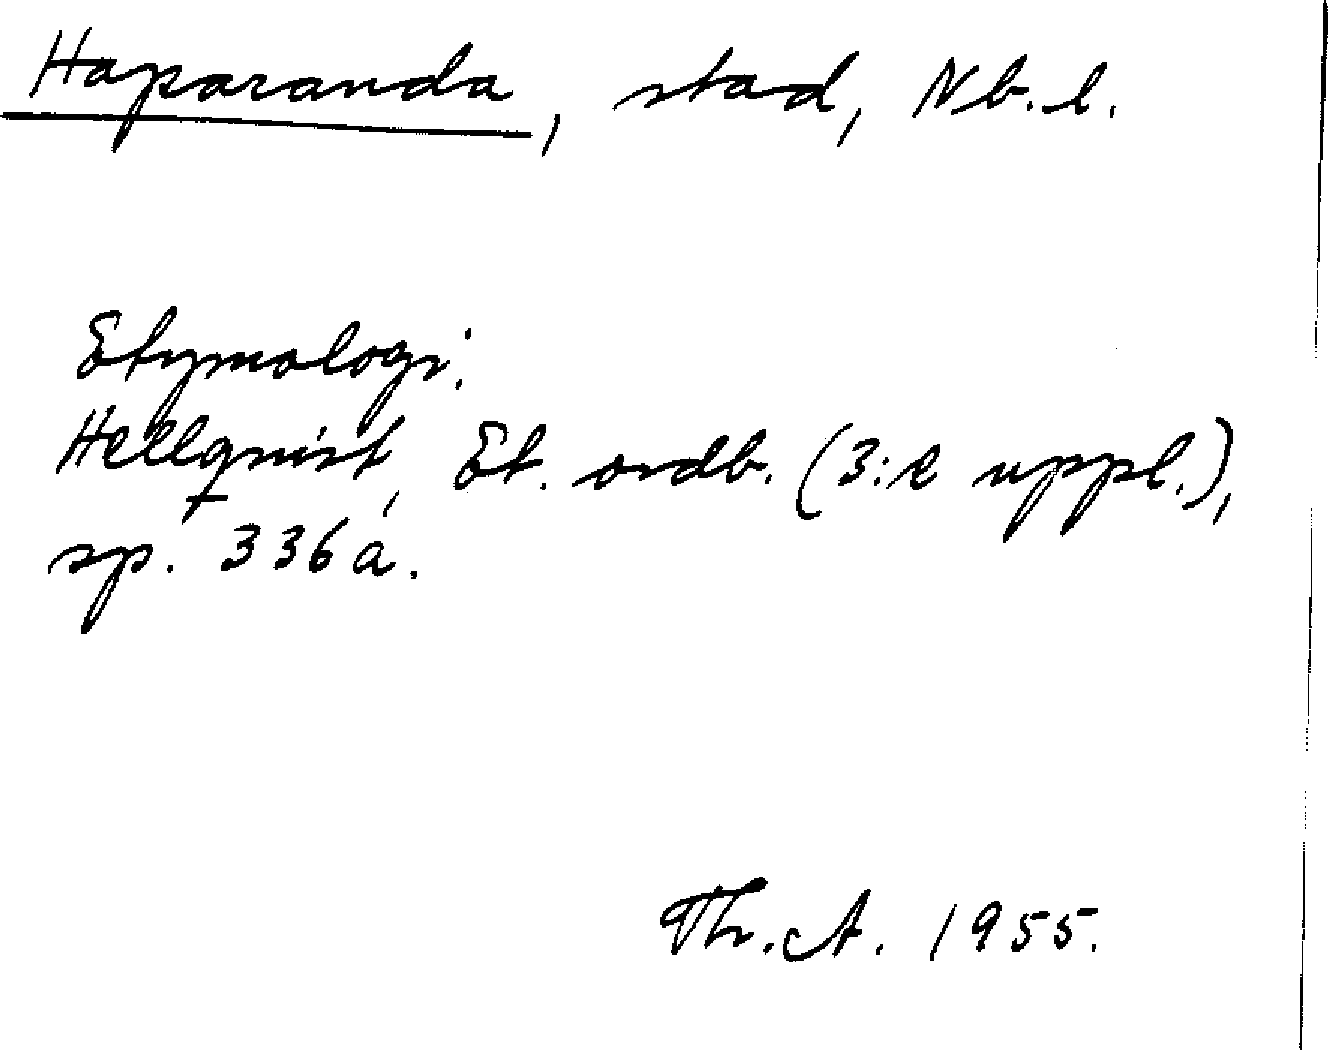 Haparanda, stad, Nb. l.
Etymologi.
Hellquist, Et. ordb. (3:e uppl.),
sp. 336 a.
Th. A. 1955.